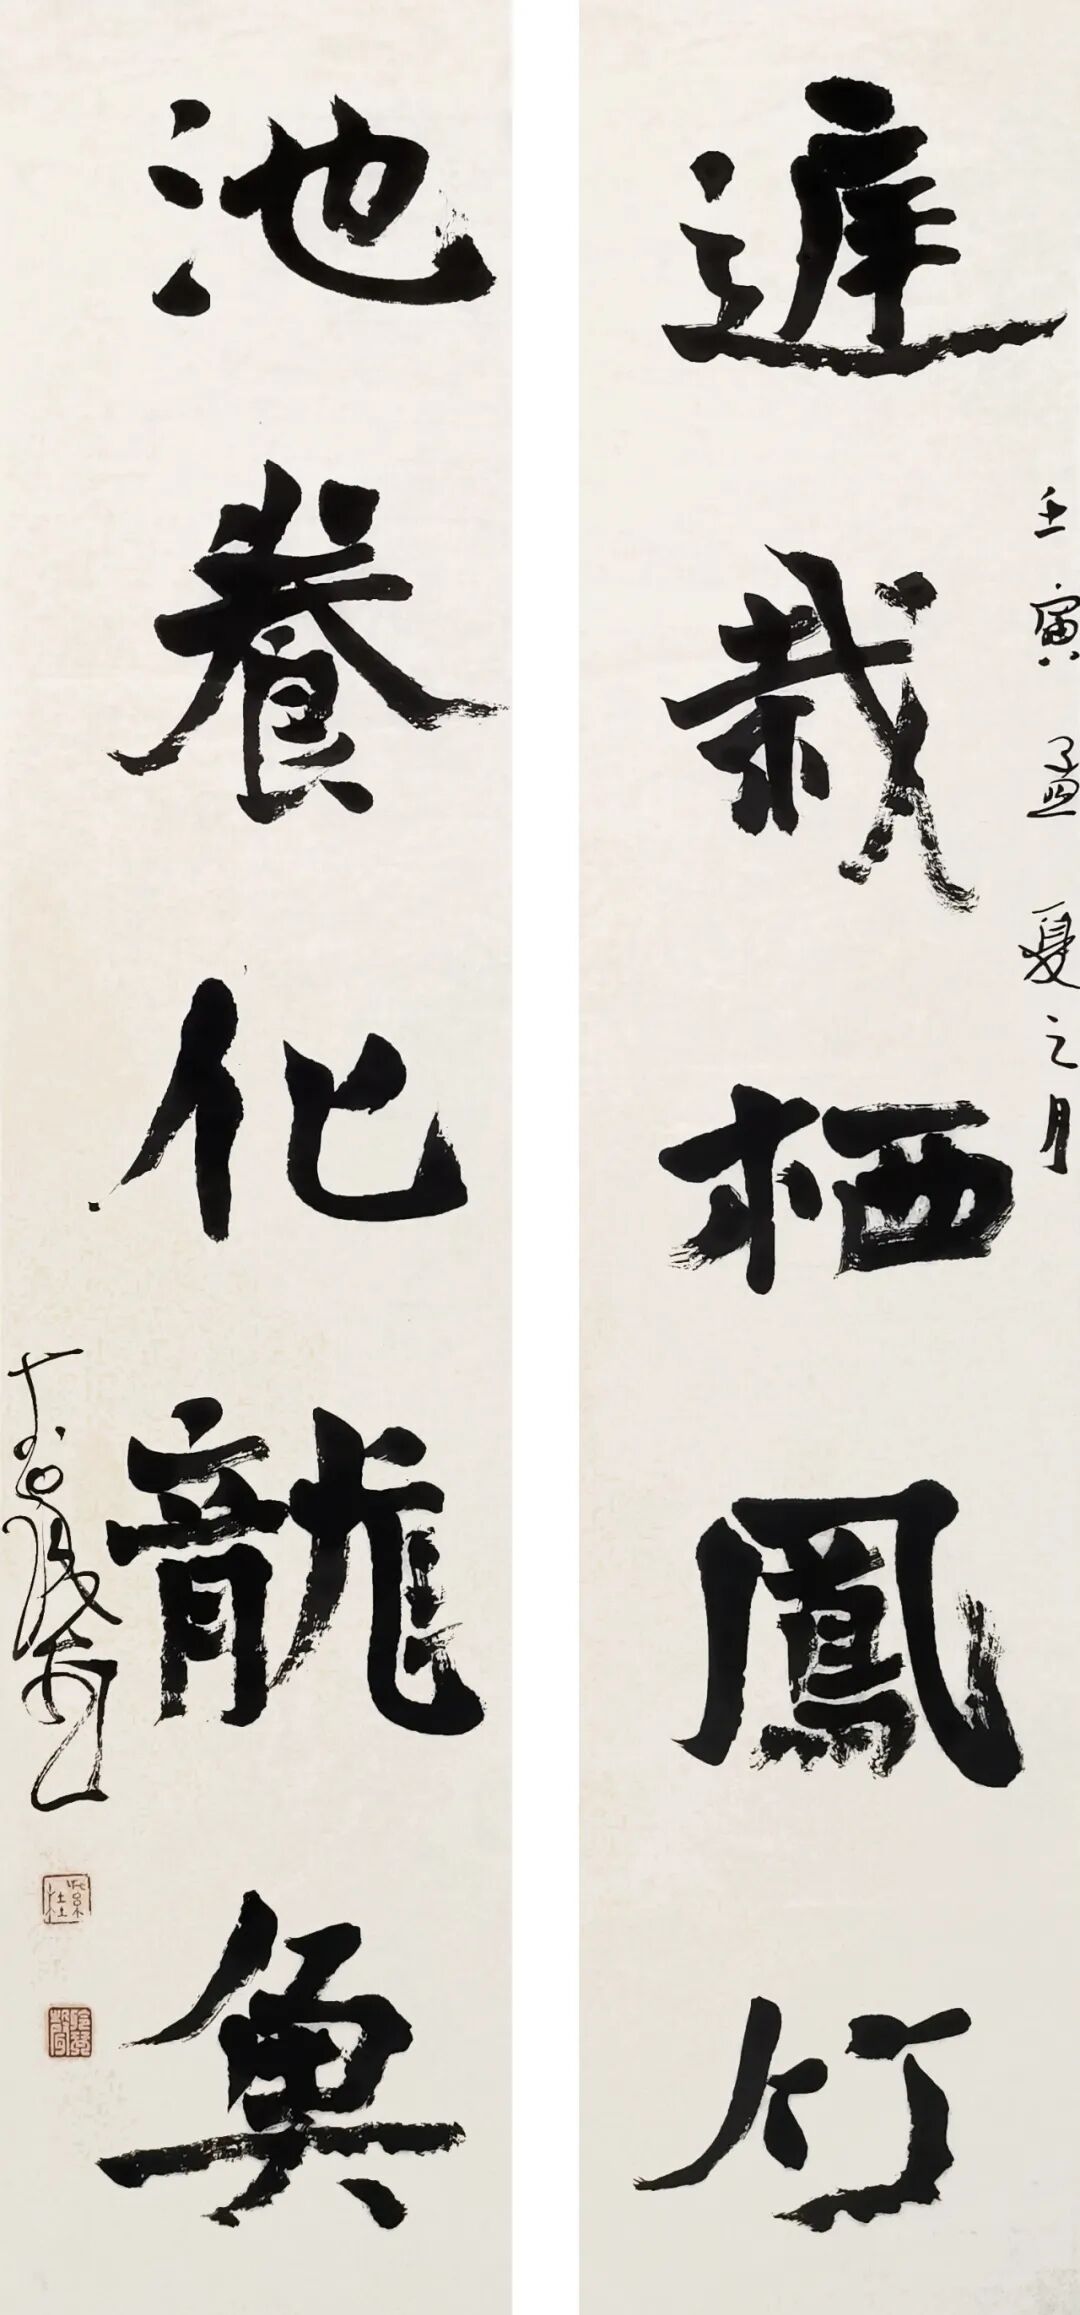 庭栽栖鳳竹
壬寅孟夏之月
池養化龍魚